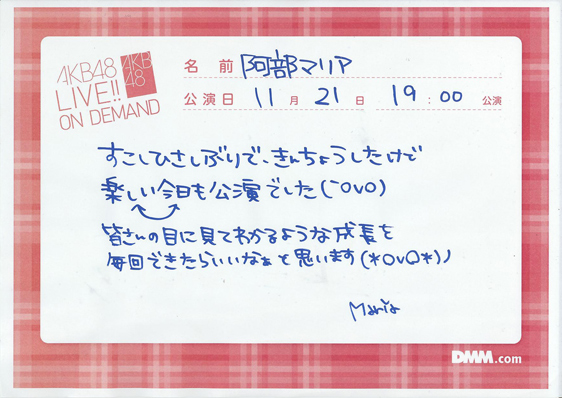 AKB48
LIVE!!
ON DEMAND
AKB
48
名 前 阿部マリア
公演日 11 月 21 日 19:00 公演
すこしひさしぶりで、きんちょうしたけど
楽しい今日も公演でした(^OvO)
皆さんの目に見てわかるような成長を
毎回できたらいいなぁと思います(*OvO*)ノ
Maria
DMM.com